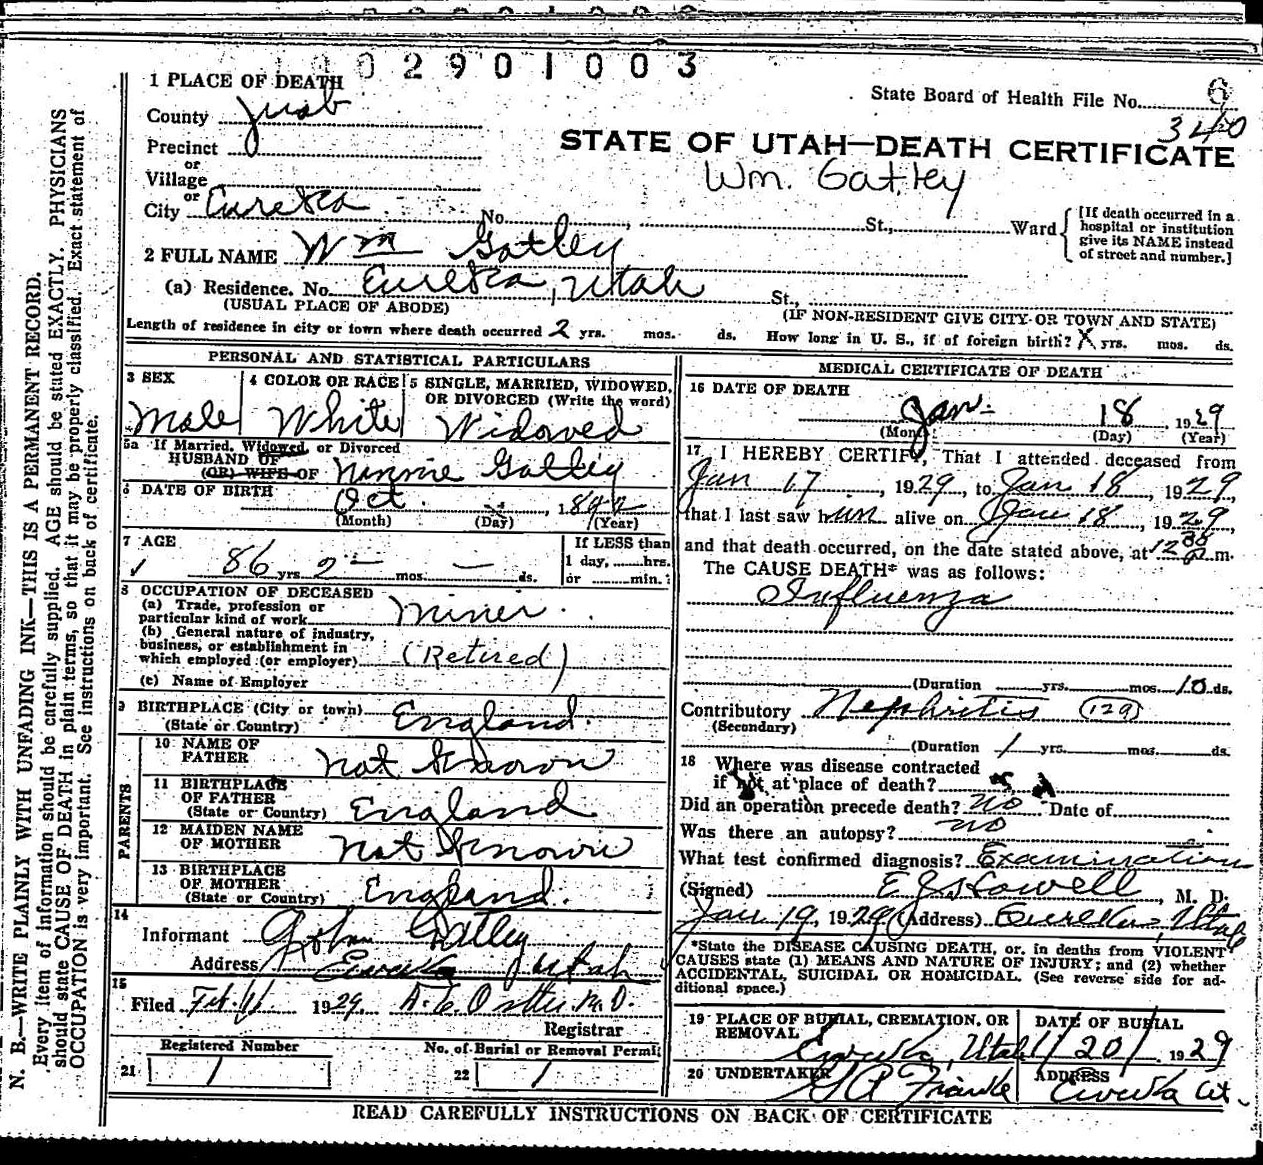 02901003
1 PLACE OF DEATH
State Board of Health File No. 6
County Juab
340
Precinct
STATE OF UTAH—DEATH CERTIFICATE
or
Village
Wm. Gatley
or
City Eureka No. , St., Ward
[If death occurred in a hospital or institution give its NAME instead of street and number.]
2 FULL NAME Wm Gatley
(a) Residence. No. Eureka, Utah St.,
(USUAL PLACE OF ABODE) (IF NON-RESIDENT GIVE CITY OR TOWN AND STATE)
Length of residence in city or town where death occurred 2 yrs. mos. ds. How long in U. S., if of foreign birth? X yrs. mos. ds.
PERSONAL AND STATISTICAL PARTICULARS
3 SEX 4 COLOR OR RACE 5 SINGLE, MARRIED, WIDOWED, OR DIVORCED (Write the word)
Male White Widowed
5a If Married, Widowed, or Divorced
HUSBAND OF
(OR) WIFE OF Nannie Gatley
6 DATE OF BIRTH Oct , 18
(Month) (Day) (Year)
7 AGE If LESS than
86 yrs. 2 mos. — ds. 1 day, hrs.
or min.
8 OCCUPATION OF DECEASED
(a) Trade, profession or
particular kind of work Miner
(b) General nature of industry,
business, or establishment in
which employed (or employer) (Retired)
(c) Name of Employer
9 BIRTHPLACE (City or town) England
(State or Country)
PARENTS
10 NAME OF
FATHER not Known
11 BIRTHPLACE
OF FATHER England
(State or Country)
12 MAIDEN NAME
OF MOTHER not Known
13 BIRTHPLACE
OF MOTHER England
(State or Country)
14
Informant John Gatley
Address Eureka Utah
15
Filed Feb. 11 1929. M.D.
Registrar
Registered Number No. of Burial or Removal Permit
21 1 22 1
MEDICAL CERTIFICATE OF DEATH
16 DATE OF DEATH
Jan- 18 1929
(Month) (Day) (Year)
17 I HEREBY CERTIFY, That I attended deceased from
Jan 17, 1929, to Jan 18, 1929,
that I last saw him alive on Jan 18, 1929,
and that death occurred, on the date stated above, at 12 m.
The CAUSE DEATH* was as follows:
Influenza
(Duration yrs. mos. 10 ds.
Contributory Nephritis (129)
(Secondary)
(Duration 1 yrs. mos. ds.
18 Where was disease contracted
if not at place of death?
Did an operation precede death? no Date of
Was there an autopsy? no
What test confirmed diagnosis? Examination
(Signed) Howell, M. D.
Jan 19, 1929 (Address) Eureka, Utah
*State the DISEASE CAUSING DEATH, or, in deaths from VIOLENT
CAUSES state (1) MEANS AND NATURE OF INJURY; and (2) whether
ACCIDENTAL, SUICIDAL OR HOMICIDAL. (See reverse side for ad-
ditional space.)
19 PLACE OF BURIAL, CREMATION, OR REMOVAL DATE OF BURIAL
Eureka, Utah 1/20/ 1929
20 UNDERTAKER ADDRESS
Franke Eureka Ut.
READ CAREFULLY INSTRUCTIONS ON BACK OF CERTIFICATE
N. B.—WRITE PLAINLY WITH UNFADING INK—THIS IS A PERMANENT RECORD.
Every item of information should be carefully supplied. AGE should be stated EXACTLY. PHYSICIANS
should state CAUSE OF DEATH in plain terms, so that it may be properly classified. Exact statement of
OCCUPATION is very important. See instructions on back of certificate.